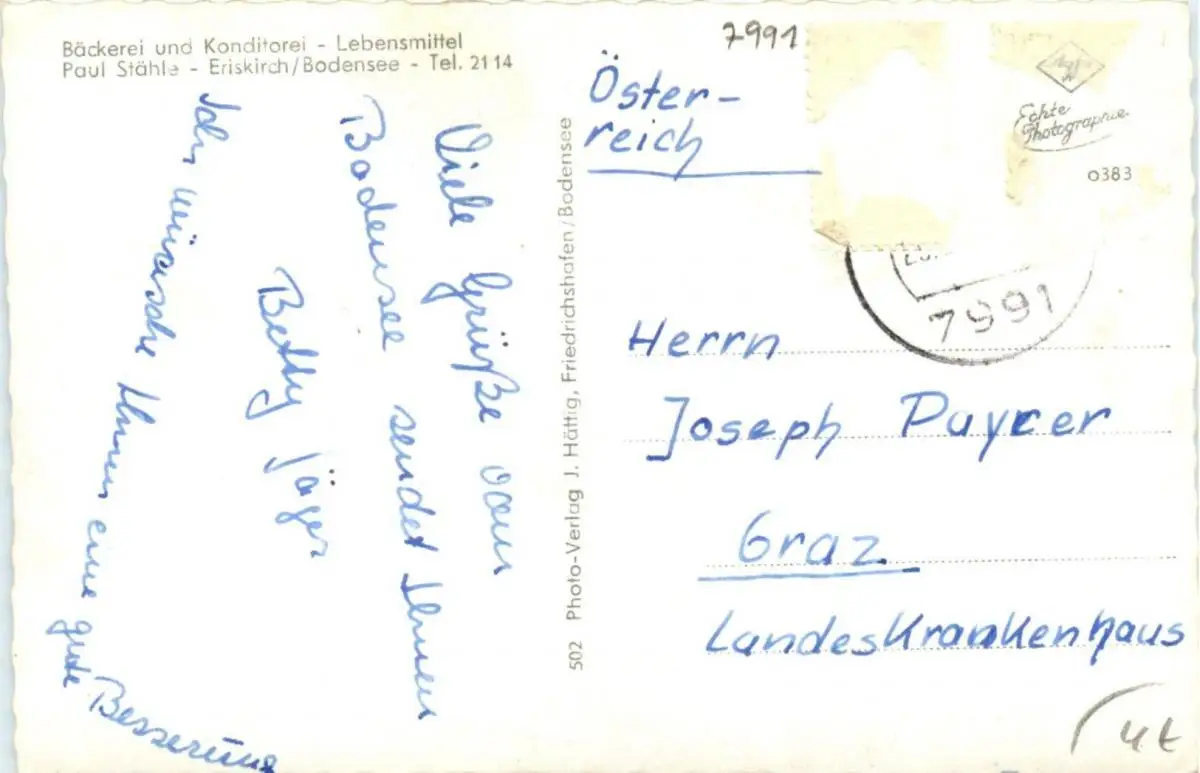 Bäckerei und Konditorei - Lebensmittel
Paul Stähle - Eriskirch/Bodensee - Tel. 2114
Viele Grüße vom
Bodensee sendet Ihnen
Betty Jäger
Ich wünsche Ihnen eine gute Besserung
502 Photo-Verlag J. Hättig, Friedrichshafen/Bodensee
7991
Öster-
reich
Echte
Photographie
0383
7991
Herrn
Joseph Payrer
Graz
Landeskrankenhaus